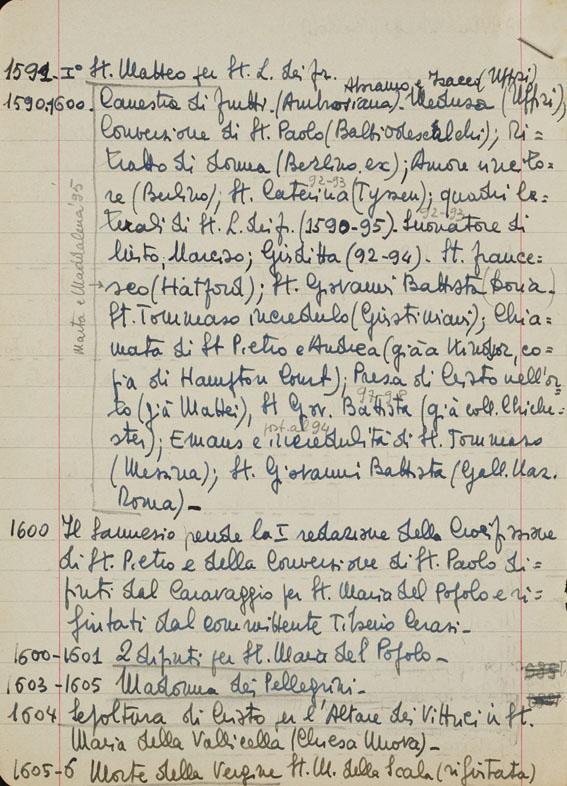 1591. I° St. Matteo per St. L. dei fr.
Abramo e Isacco (Uffizi)
1590.1600. Canestra di frutti. (Ambrosiana). Medusa (Uffizi),
Conversione di St. Paolo (Balbi Odescalchi); Ri=
tratto di donna (Berlino, ex); Amore vincito=
re (Berlino); St. Caterina (Tyssen); quadri la=
92-93
terali di St. L. dei f. (1590-95). Suonatore di
92-93
liuto, Narciso; Giuditta (92-94). St. France=
→ sco (Hatford); St. Giovanni Battista (Doria.
St. Tommaso incredulo (Giustiniani); Chia=
mata di St Pietro e Andrea (già a Windsor, co=
pia di Hampton Court); Presa di Cristo nell'or=
to (già Mattei), St Gov. Battista (già coll. Chiche=
97-98
ster); Emaus e incredulità di St. Tommaso
post. al 94
(Messina); St. Giovanni Battista (Gall. Naz.
Roma)_
Marta e Maddalena '95
1600 Il Sannesio prende la I redazione della Crocifissione
di St. Pietro e della Conversione di St. Paolo di=
pinti dal Caravaggio per St. Maria del Popolo e ri=
fiutati dal committente Tiberio Cerasi_
1600-1601 2 dipinti per St. Maria del Popolo_
1603-1605 Madonna dei Pellegrini_
1604 Sepoltura di Cristo per l'Altare dei Vittrici in St.
Maria della Vallicella (Chiesa Nuova)_
1605-6 Morte della Vergine St. M. della Scala (rifiutata)